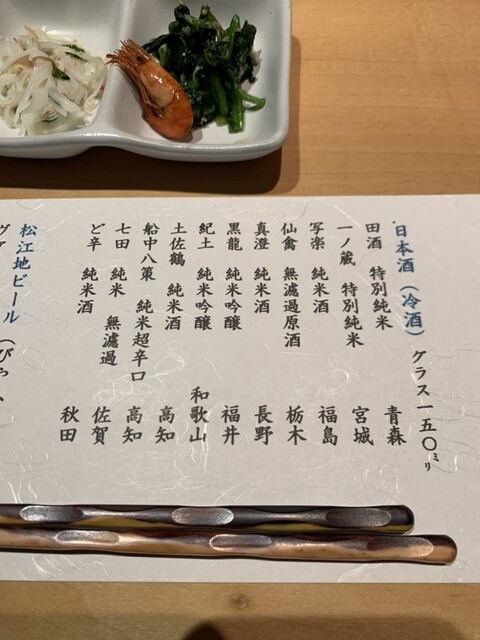 日本酒（冷酒） グラス一五〇ミリ
田酒 特別純米 青森
一ノ蔵 特別純米 宮城
写楽 純米酒 福島
仙禽 無濾過原酒 栃木
真澄 純米酒 長野
黒龍 純米吟醸 福井
紀土 純米吟醸 和歌山
土佐鶴 純米酒 高知
船中八策 純米超辛口 高知
七田 純米 無濾過 佐賀
ど辛 純米酒 秋田
松江地ビール（びあへ
ヴァ